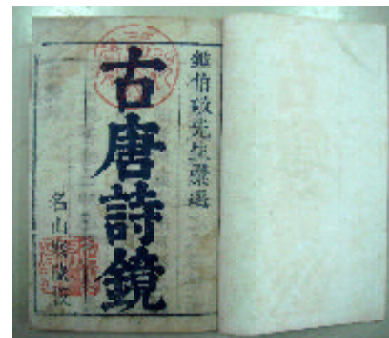 鍾伯敬先生彙選
古唐詩鏡
名山聚藏板